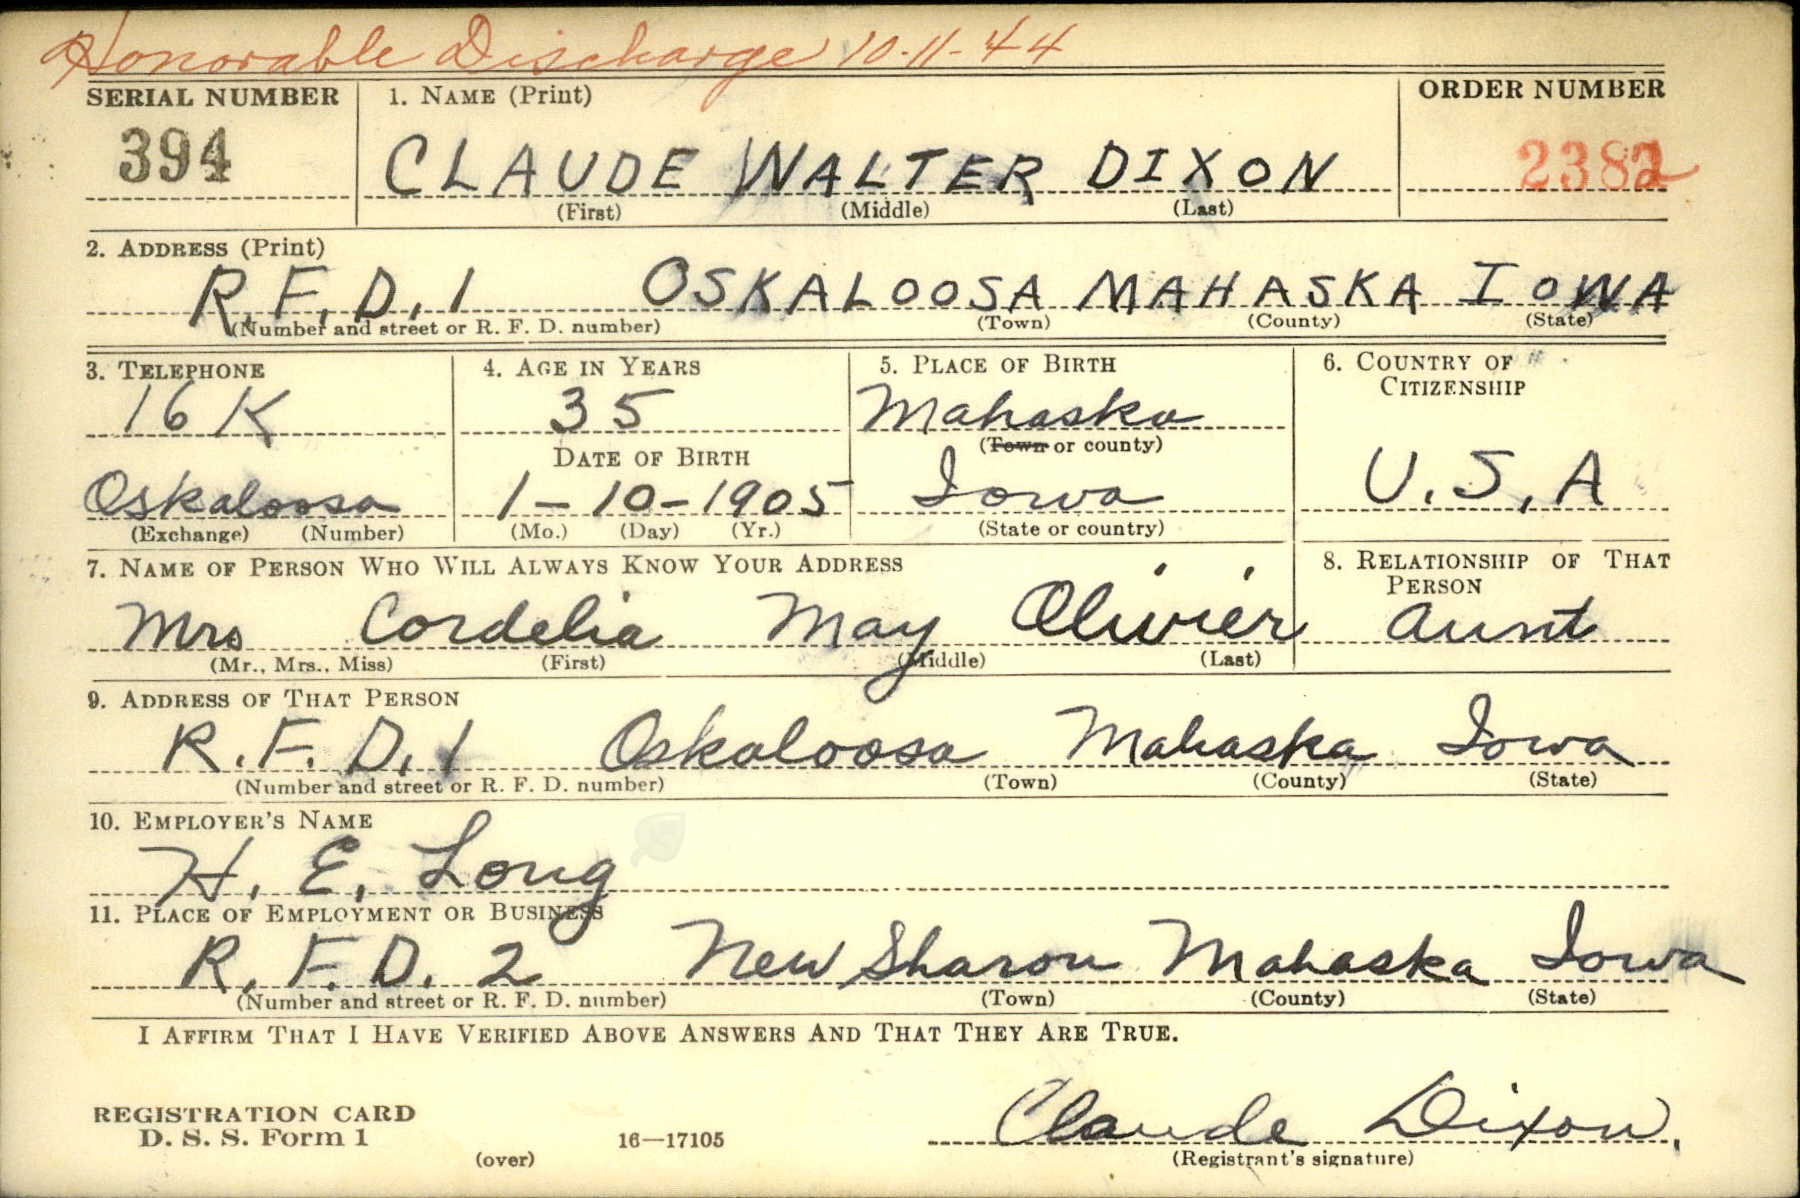 Honorable Discharge 10-11-44
SERIAL NUMBER 1. NAME (Print) ORDER NUMBER
394 CLAUDE WALTER DIXON 2382
(First) (Middle) (Last)
2. ADDRESS (Print)
R.F.D.1 OSKALOOSA MAHASKA IOWA
(Number and street or R. F. D. number) (Town) (County) (State)
3. TELEPHONE 4. AGE IN YEARS 5. PLACE OF BIRTH 6. COUNTRY OF
CITIZENSHIP
16 K 35 Mahaska
DATE OF BIRTH (Town or county)
Oskaloosa 1-10-1905 Iowa U.S.A
(Exchange) (Number) (Mo.) (Day) (Yr.) (State or country)
7. NAME OF PERSON WHO WILL ALWAYS KNOW YOUR ADDRESS 8. RELATIONSHIP OF THAT
PERSON
Mrs Cordelia May Olivier aunt
(Mr., Mrs., Miss) (First) (Middle) (Last)
9. ADDRESS OF THAT PERSON
R.F.D.1 Oskaloosa Mahaska Iowa
(Number and street or R. F. D. number) (Town) (County) (State)
10. EMPLOYER'S NAME
H. E. Long
11. PLACE OF EMPLOYMENT OR BUSINESS
R.F.D. 2 New Sharon Mahaska Iowa
(Number and street or R. F. D. number) (Town) (County) (State)
I AFFIRM THAT I HAVE VERIFIED ABOVE ANSWERS AND THAT THEY ARE TRUE.
REGISTRATION CARD
D. S. S. Form 1 16—17105 Claude Dixon.
(over) (Registrant's signature)